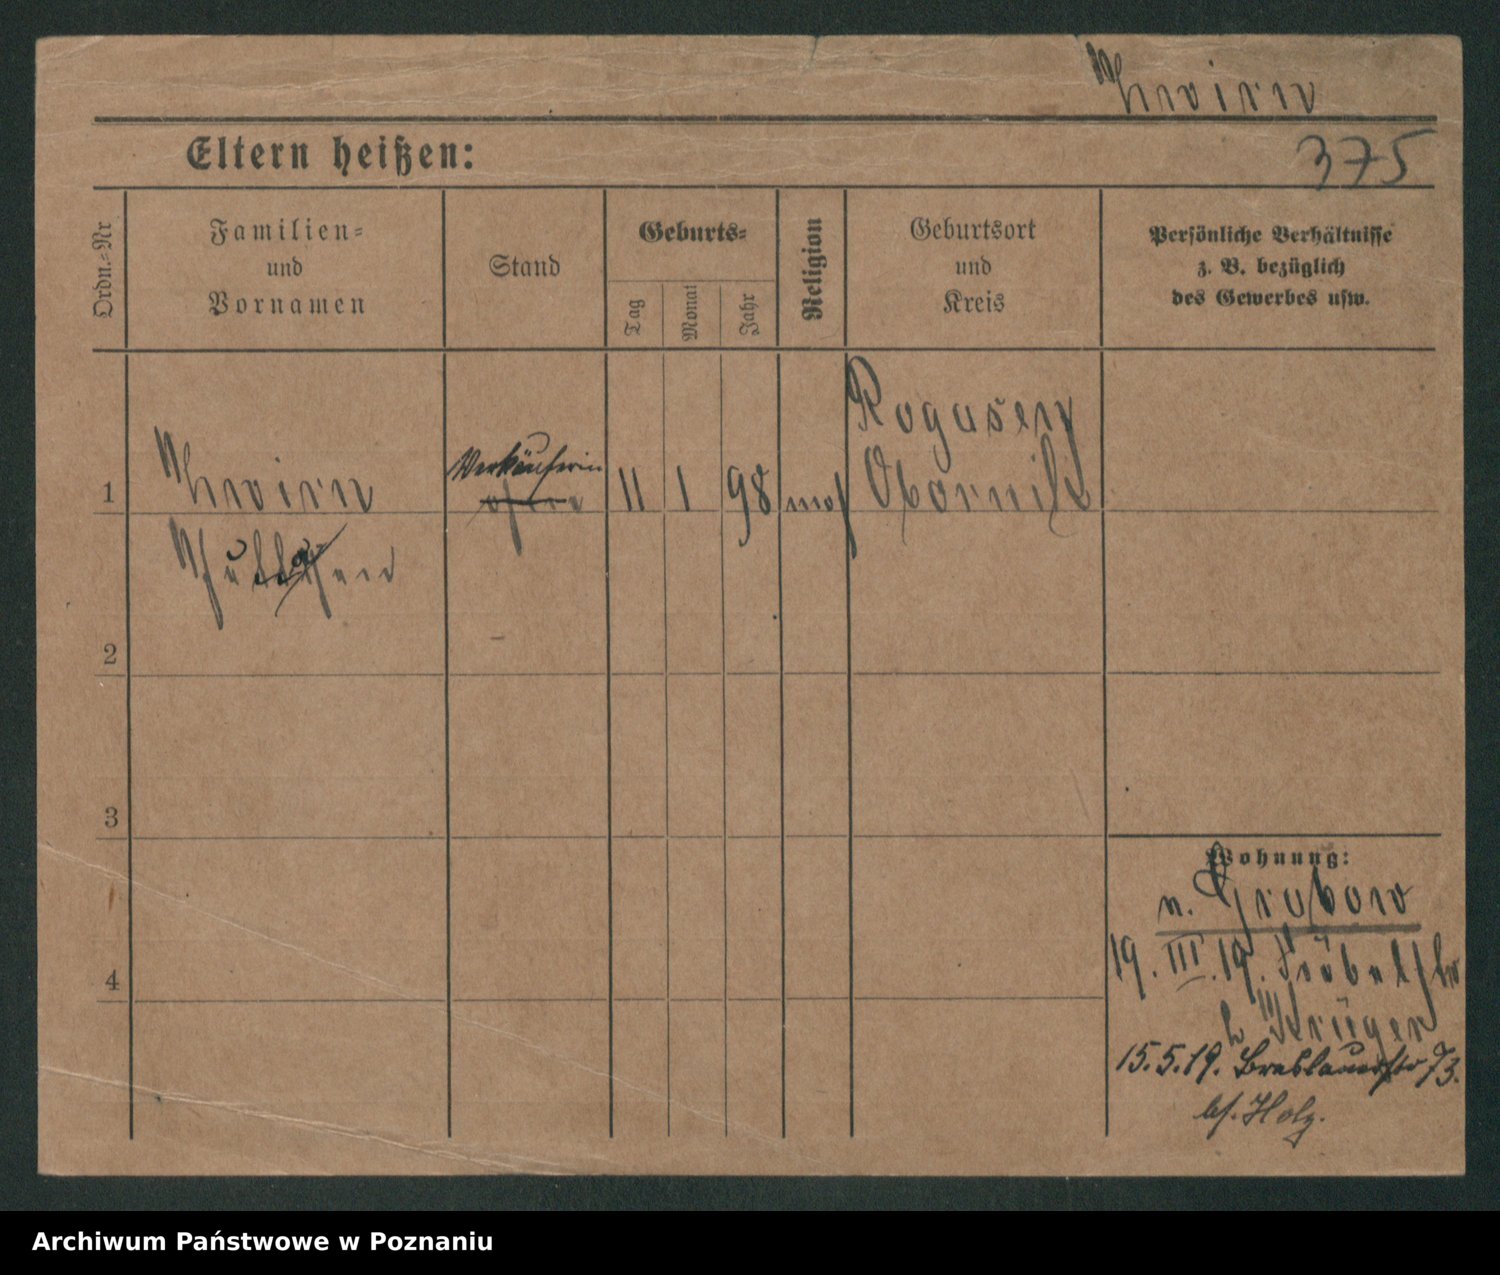 Zwirn
375
Eltern heißen:
Ordn.-Nr
Familien-
und
Vornamen
Stand
Geburts-
Tag
Monat
Jahr
Religion
Geburtsort
und
Kreis
Persönliche Verhältnisse
z. B. bezüglich
des Gewerbes usw.
1
Zwirn
Verkäuferin
ohne
11
1
98
mos
Rogasen
Obornik
2
3
4
Wohnung:
n. Grabow
19. III. 19. Fröbelstr
b Krüger
15.5.19. Breslauerstr
bf. Holz.
Archiwum Państwowe w Poznaniu